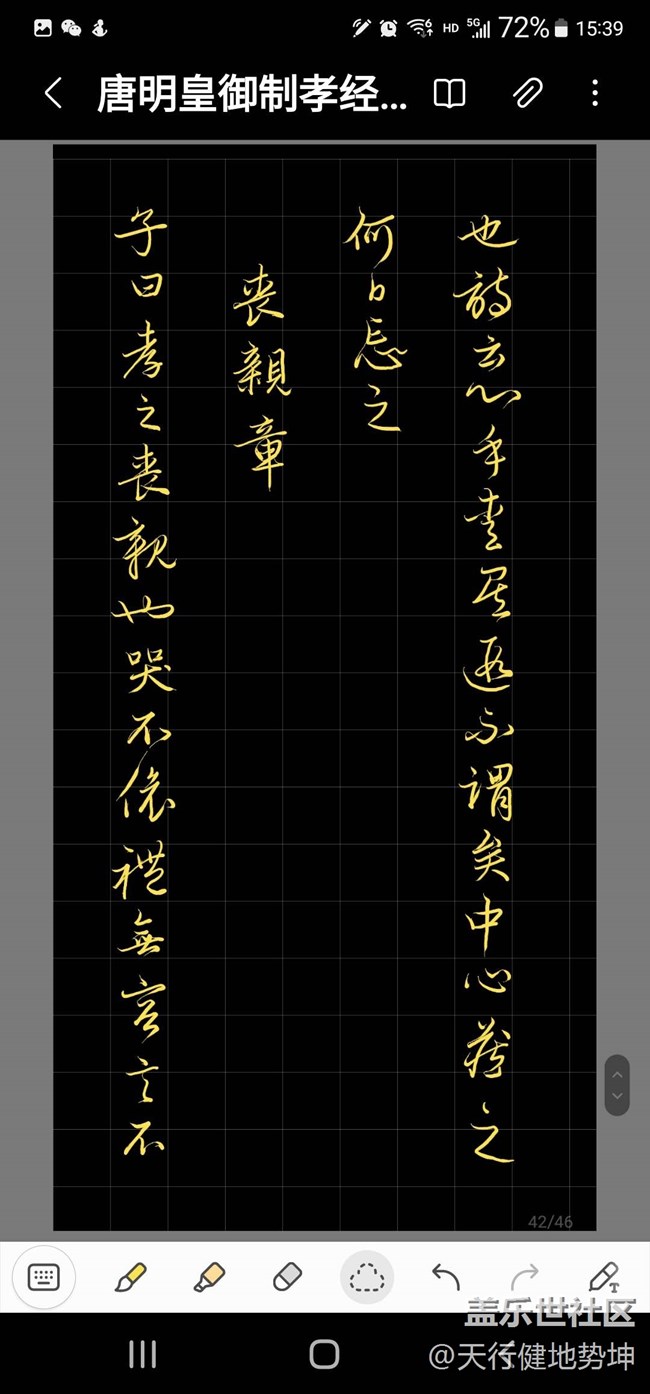 15:39
72%
HD
5G
唐明皇御制孝经...
也詩云心乎愛矣遐不謂矣中心藏之
何日忘之
喪親章
子曰孝之喪親也哭不偯禮無容言不
42/46
盖乐世社区
@天行健地势坤